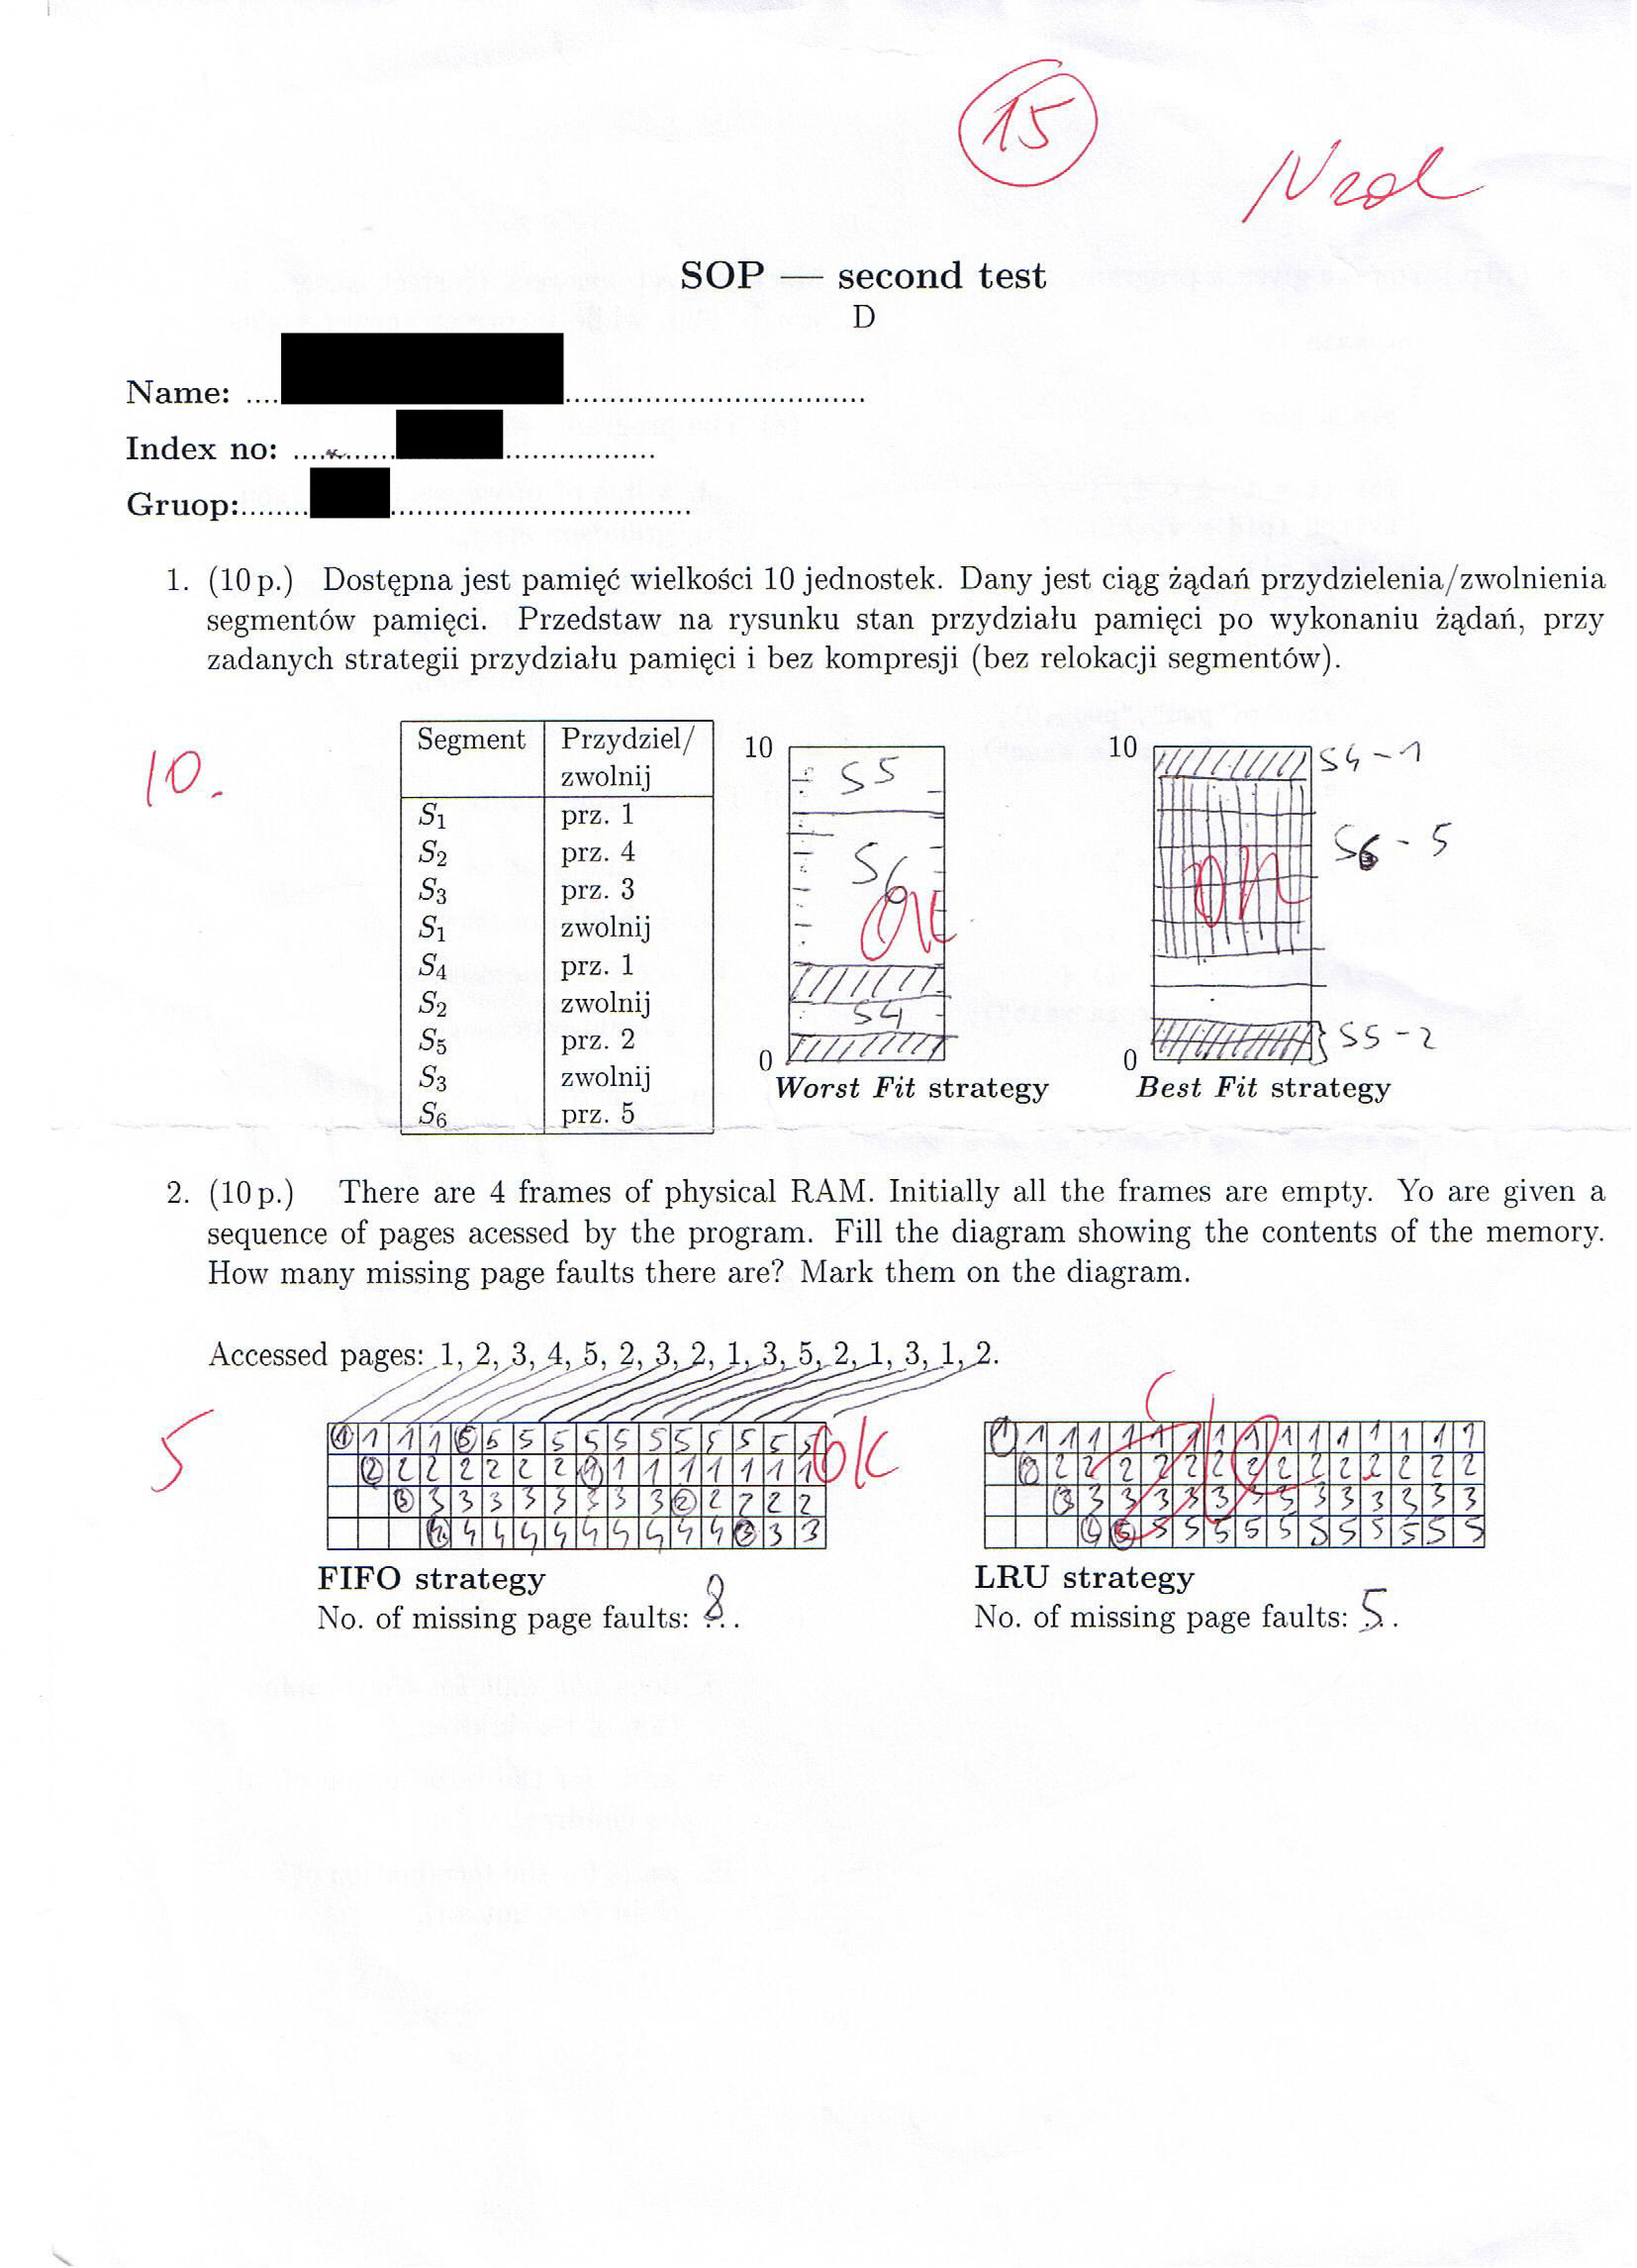 15
Nzal
SOP — second test
D
Name: ....................................
Index no: ..........................
Gruop:.......................................
1. (10 p.) Dostępna jest pamięć wielkości 10 jednostek. Dany jest ciąg żądań przydzielenia/zwolnienia
segmentów pamięci. Przedstaw na rysunku stan przydziału pamięci po wykonaniu żądań, przy
zadanych strategii przydziału pamięci i bez kompresji (bez relokacji segmentów).
10.
Segment Przydziel/
zwolnij
S1 prz. 1
S2 prz. 4
S3 prz. 3
S1 zwolnij
S4 prz. 1
S2 zwolnij
S5 prz. 2
S3 zwolnij
S6 prz. 5
10
S5
S6
OK
S4
0
Worst Fit strategy
10
S4 - 1
S6 - 5
OK
S5 - 2
0
Best Fit strategy
2. (10 p.) There are 4 frames of physical RAM. Initially all the frames are empty. Yo are given a
sequence of pages acessed by the program. Fill the diagram showing the contents of the memory.
How many missing page faults there are? Mark them on the diagram.
Accessed pages: 1, 2, 3, 4, 5, 2, 3, 2, 1, 3, 5, 2, 1, 3, 1, 2.
5
1 1 1 1 5 5 5 5 5 5 5 5 5 5 5 5
2 2 2 2 2 2 2 1 1 1 1 1 1 1 1
3 3 3 3 3 3 3 3 3 2 2 2 2 2
4 4 4 4 4 4 4 4 4 4 3 3 3
OK
FIFO strategy
No. of missing page faults: 8
1 1 1 1 1 1 1 1 1 1 1 1 1 1 1 1
2 2 2 2 2 2 2 2 2 2 2 2 2 2 2
3 3 3 3 3 3 3 3 3 3 3 3 3 3
4 5 5 5 5 5 5 5 5 5 5 5 5
LRU strategy
No. of missing page faults: 5